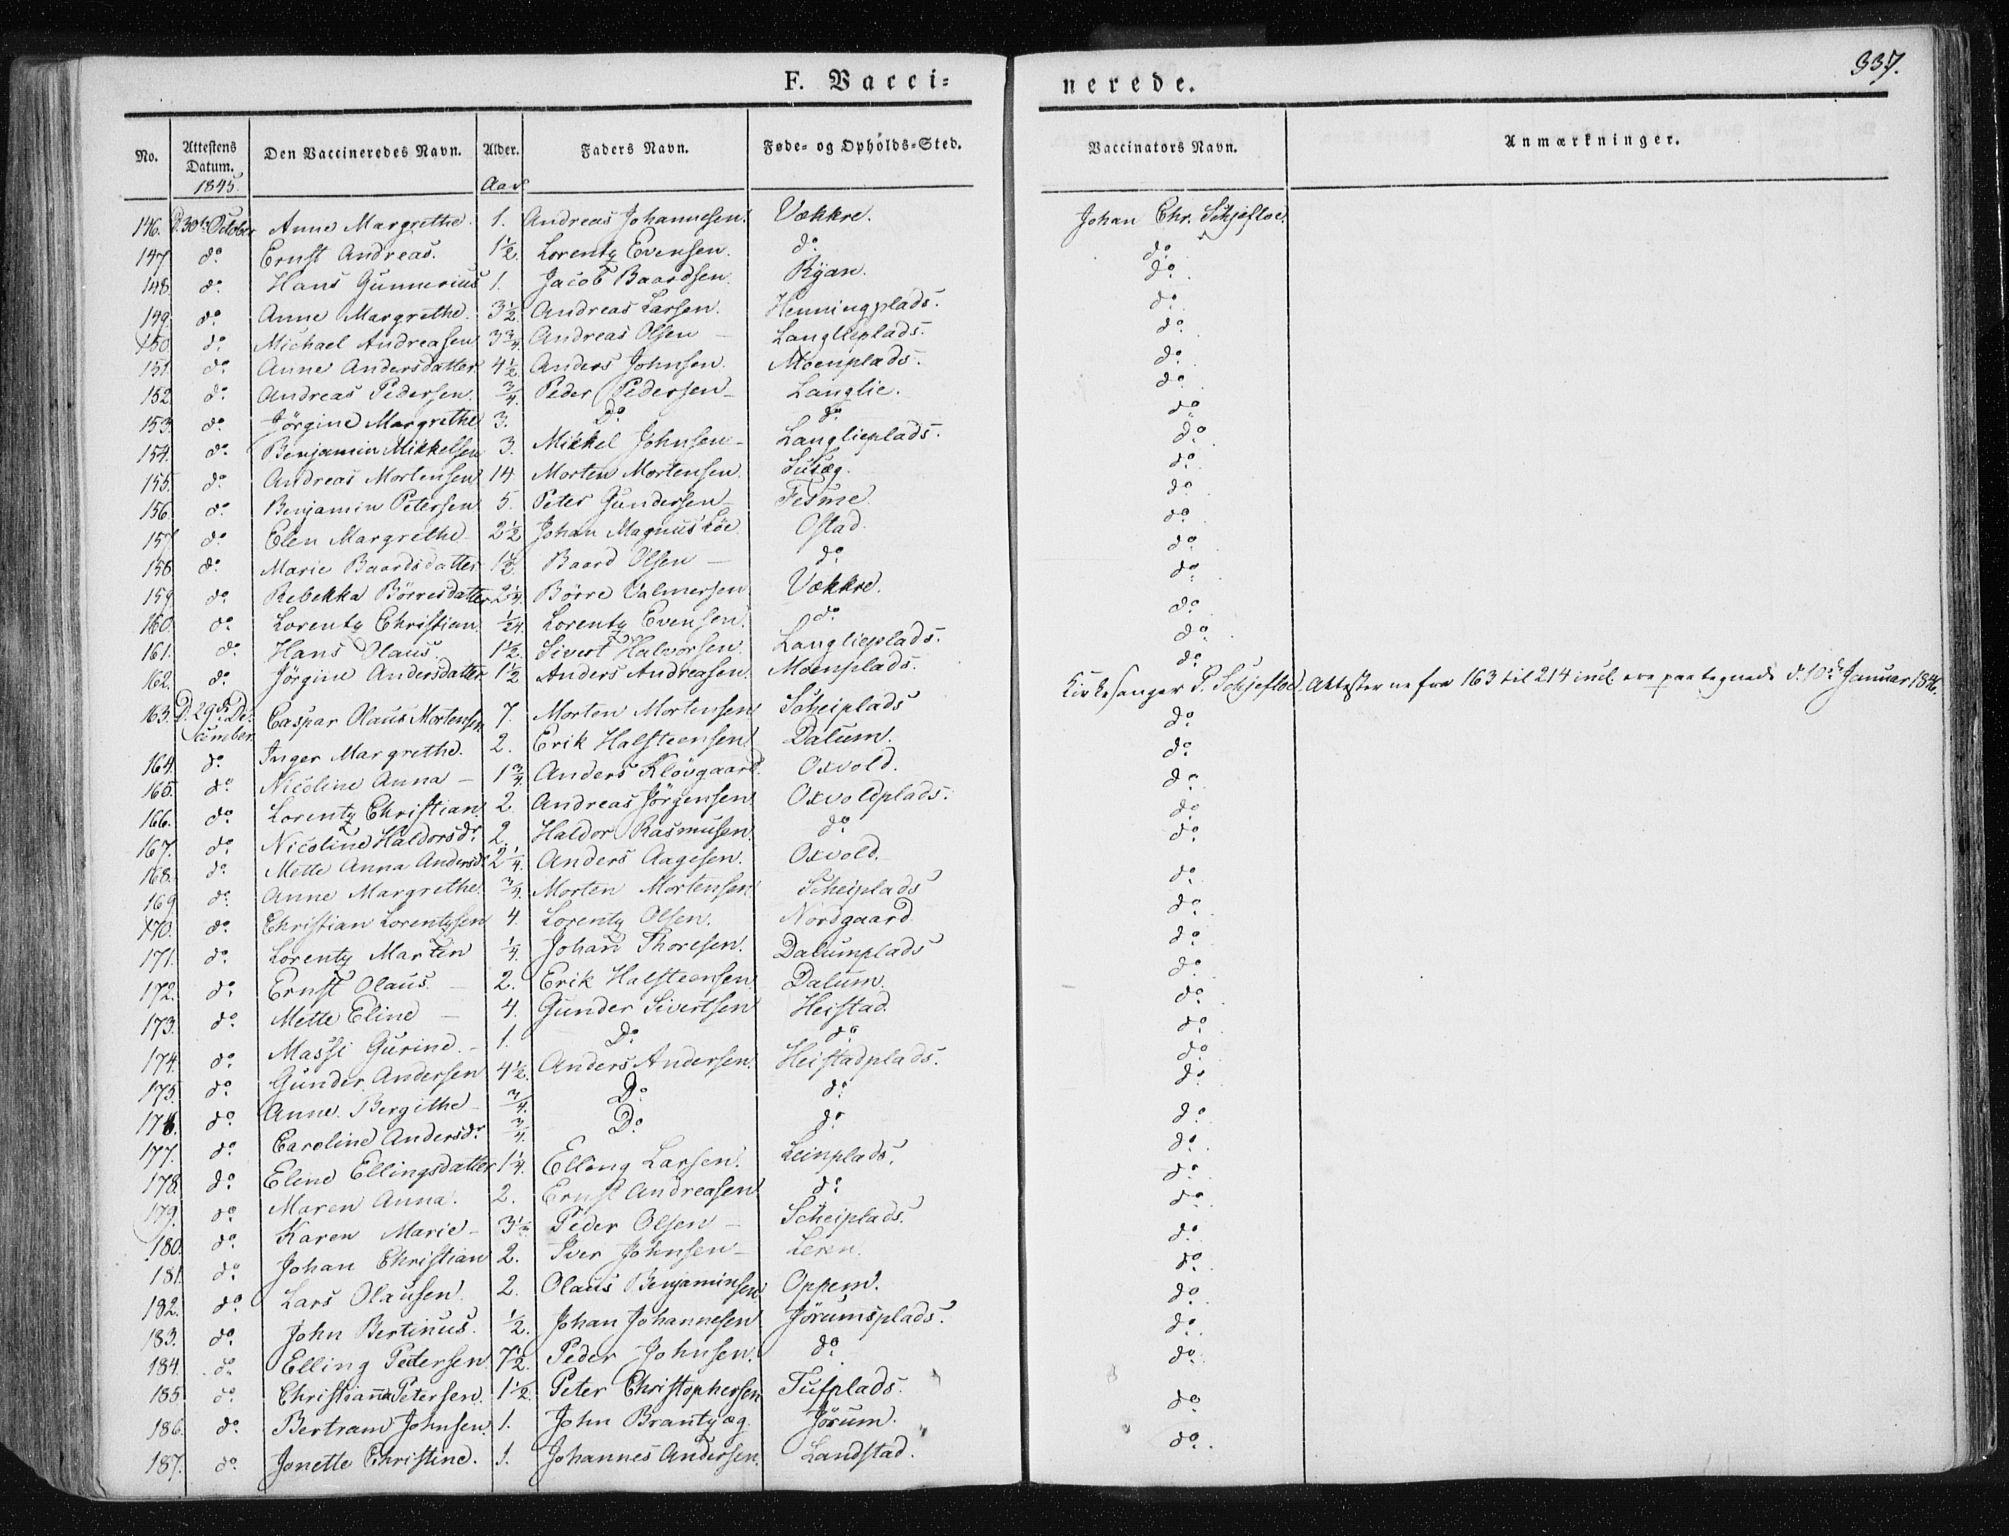 337.
F. Vacci=
nerede.
No. Attestens Datum. Den Vaccineredes Navn. Alder. Faders Navn. Føde- og Opholds-Sted. Vaccinators Navn. Anmærkninger.
1845. Aar
146. D. 30te October Anne Margrethe. 1. Andreas Johannesen. Vækkre. Johan Chr. Schjefloe.
147 do. Ernst Andreas. 1½. Lorentz Evensen. do. do.
148. do. Hans Gunnerius 1. Jacob Baardsen. Ryan. do.
149. do. Anne Margrethe. 3½ Andreas Larsen. Henningplads. do.
150. do. Michael Andreasen 3¾ Andreas Olsen — Langlieplads. do.
151. do. Anne Andersdatter 4½ Anders Johnsen. Moenplads. do.
152. do. Andreas Pedersen. ¾. Peder Pedersen — Langlie. do.
153. do. Jörgine Margrethe 3. Do do do
154. do. Benjamin Mikkelsen 3. Mikkel Johnsen — Langlieplads. do.
155. do. Andreas Mortensen 14. Morten Mortensen. do.
156. do. Benjamin Petersen 5. Peter Gundersen — do.
157 do. Elen Margrethe — 2½ Johan Magnus Löe Ostad. do.
158. do. Marie Baardsdatter 1½. Baard Olsen — do. do.
159. do. Rebekka Börresdatter 2¼. Börre Valmersen Vækkre. do.
160. do. Lorentz Christian. Lorentz Evensen. do. do.
161. do. Hans Olaus 1½. Sivert Halvorsen. Langlieplads. do.
162. do. Jörgine Andersdatter 1½ Anders Andreasen. Moenplads. do.
163. D. 29de December. Caspar Olaus Mortensen 7. Morten Mortensen Scheiplads Kirkesanger P. Schjefloe. Attesterne fra 163 til 214 incl. ere paategnede d. 10de Januar 1846.
164. do. Inger Margrethe. 2. Erik Halsteensen. Dalum. do.
165. do. Nicoline Anna — 1¾ Anders Klövgaard. Oxvold. do.
166. do. Lorentz Christian. 2. Andreas Jörgensen Oxvoldplads. do.
167. do. Nicoline Haldorsdr 2. Haldor Rasmusen. do do.
168. do. Mette Anna Andersdr 2¼. Anders Aagesen. Oxvold. do.
169. do. Anne Margrethe. ¾. Morten Mortensen Scheiplads do.
170. do. Christian Lorentzsen 4. Lorentz Olsen. Nordgaard. do.
171. do. Lorentz Marten ¼. Johan Thoresen. Dalumplads do.
172. do. Ernst Olaus. — 2. Erik Halsteensen Dalum. do.
173. do. Mette Eline — 4. Gunder Sivertsen Heistad. do.
174. do. Massi Gurine. — 1. Do. do. do.
175. do. Gunder Andersen 4½. Anders Andersen. Heistadplads. do.
176. do. Anne Bergithe — ¾. Do. do. do.
177. do. Caroline Andersdr. ¾. Do. do. do.
178. do. Eline Ellingsdatter 1¼. Elling Larsen. Leinplads. do.
179. do. Maren Anna. 2. Ernst Andreasen. do. do.
180. do. Karen Marie — 3½ Peder Olsen — Scheiplads. do.
181. do. Johan Christian 2. Iver Johnsen — Leren. do.
182. do. Lars Olausen. 2. Olaus Benjaminsen Oppem. do.
183. do. John Bertinus. ½. Johan Johannesen Jörumsplads. do.
184. do. Elling Pedersen 7½. Peder Johnsen. do. do.
185. do. Christianna Petersen. 1½. Peter Christophersen Tufplads. do.
186. do. Bertram Johnsen. 1. John Brantzæg. Jörum. do.
187. do. Jonette Christine. 1. Johannes Andersen. Landstad. do.